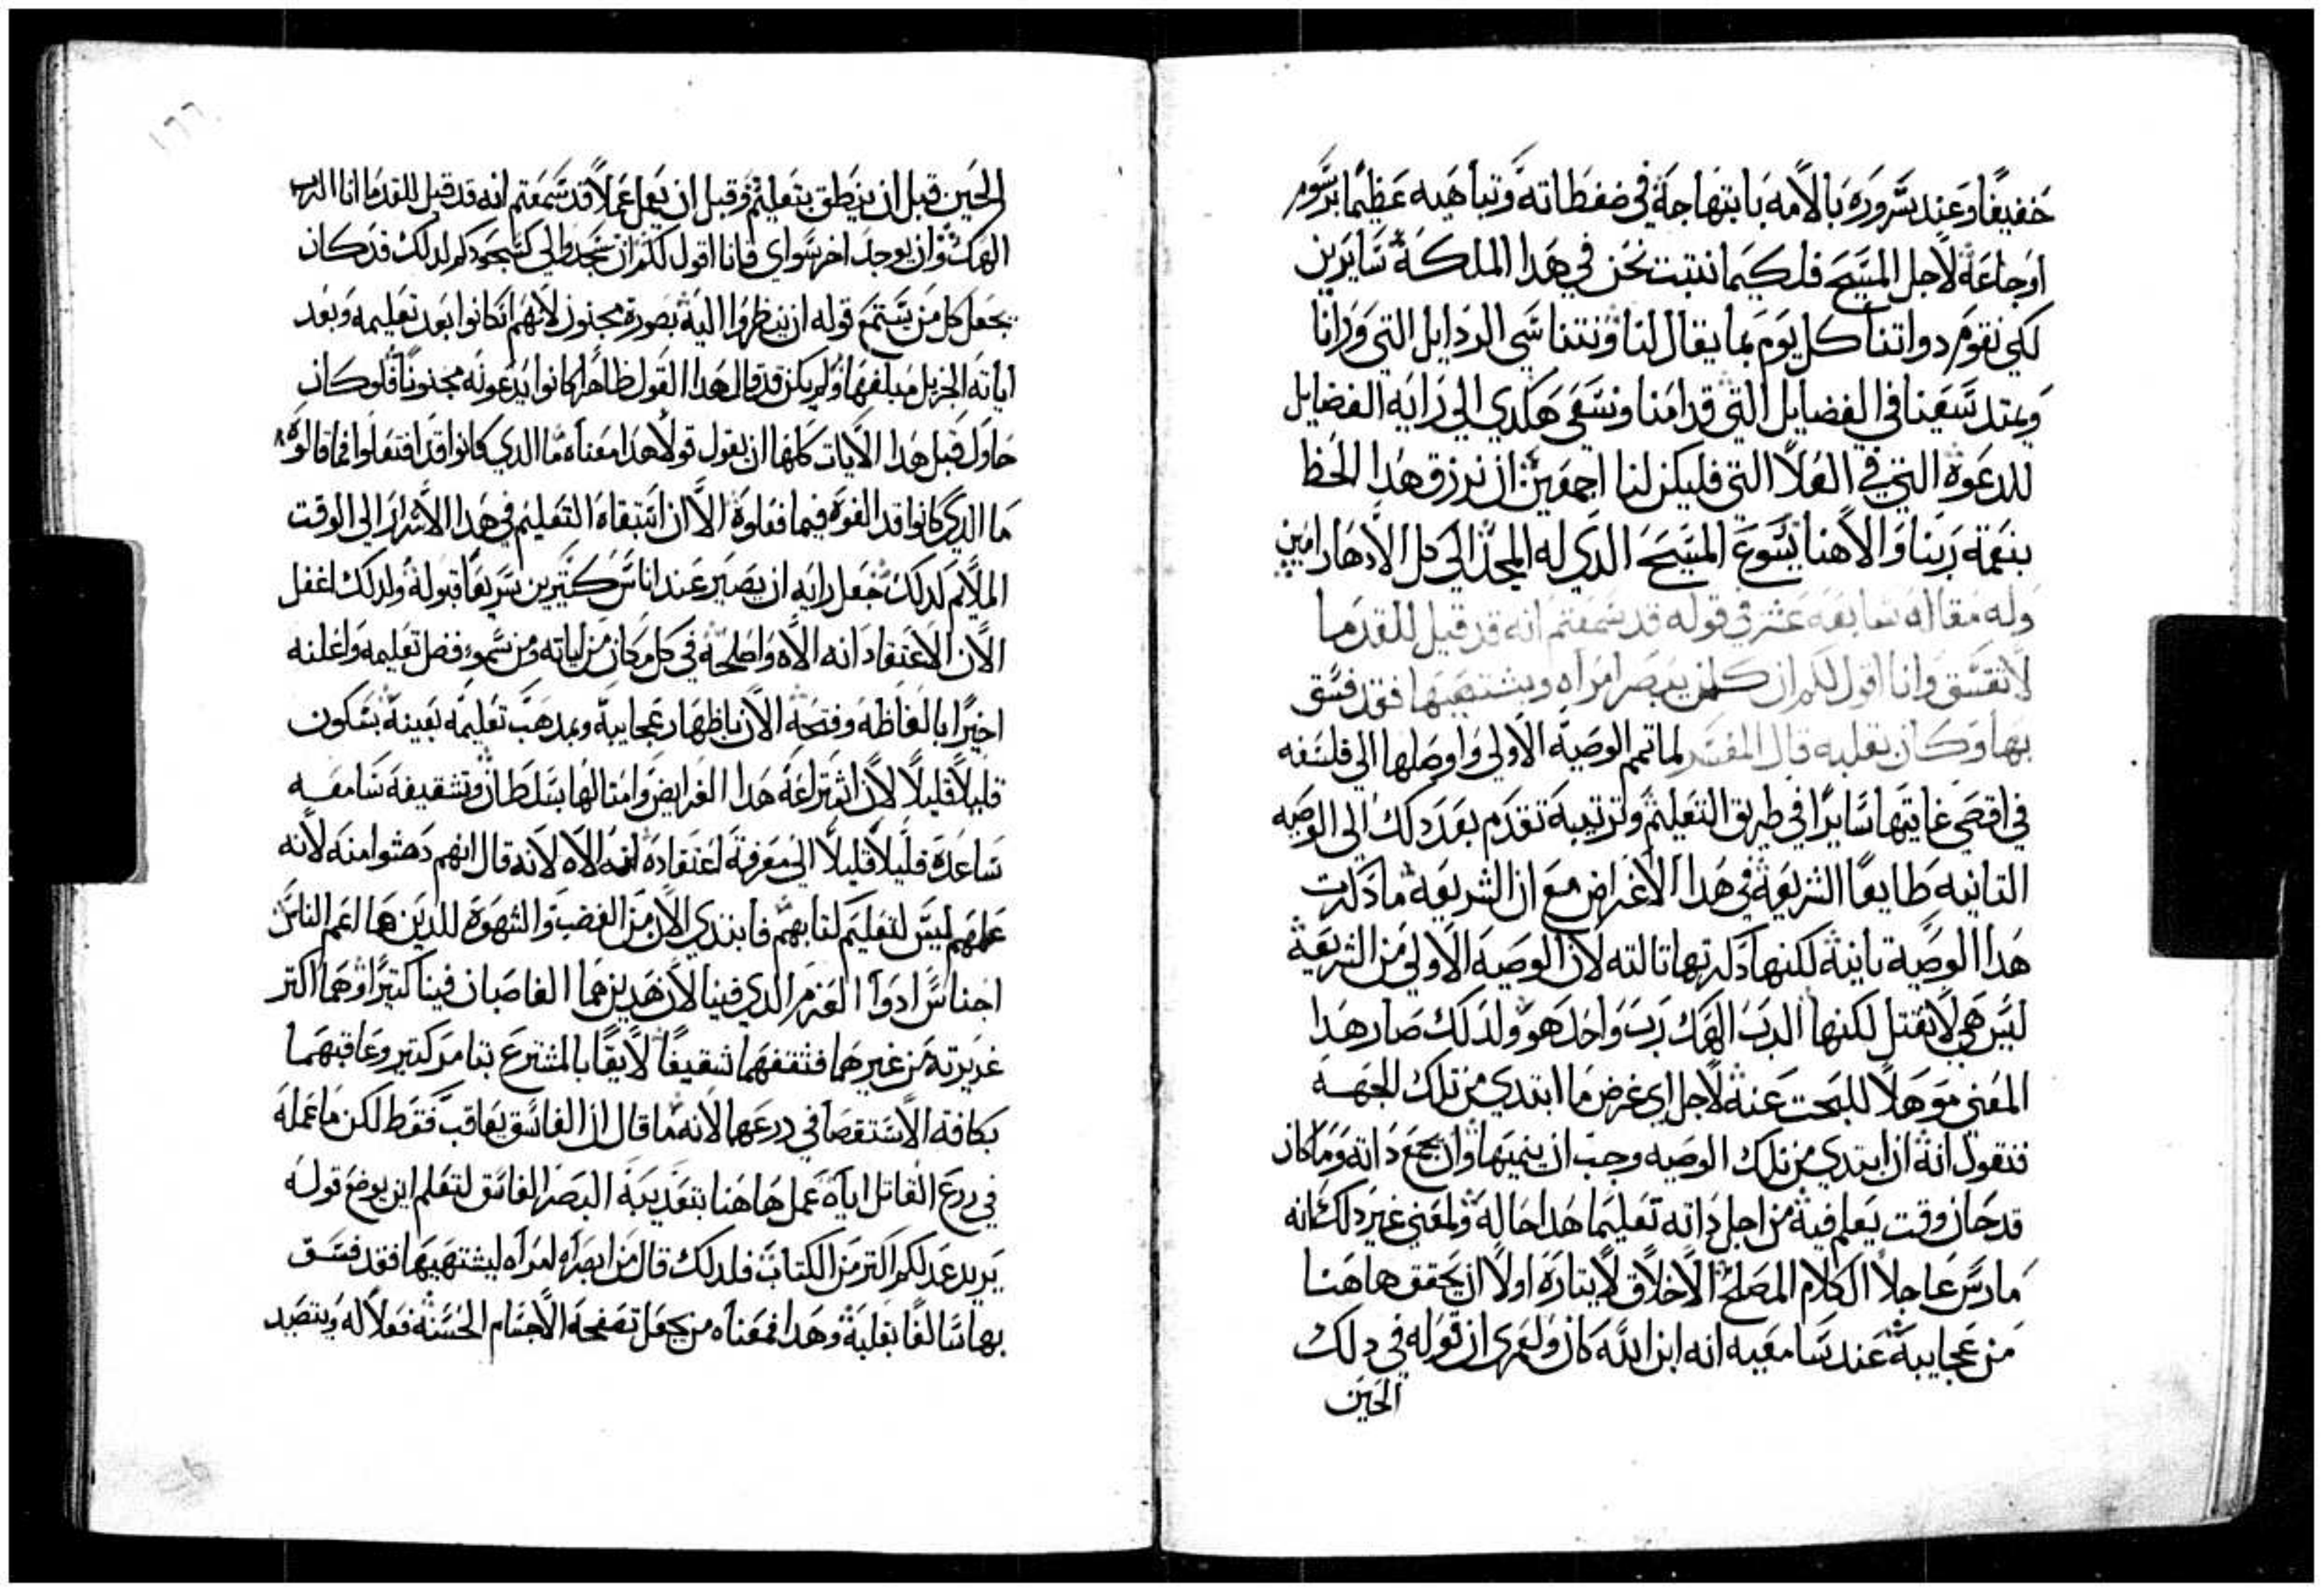 خفيفًا وعند سروره بالامه بابتهاجة في ضغطاته وتباهيه عظيمًا برسوم
اوجاعة لاجل المسيح فلكيما نتبت نحن في هدا الملكة سايرين
لكي نقوم دواتنا كل يوم بما يقال لنا ونتناسي الردايل التي ورانا
ويمتد سعينا في الفضايل التي قدامنا ونسعي هكدي الي راية الفضايل
للدعوة التي في العلا التي فليكن لنا اجمعين ان نرزق هدا الحظ
بنعمة ربنا والاهنا يسوع المسيح الدي له المجد الي كل الادهار امين
وله مقاله سابعه عشر في قوله قد سمعتم انه قد قيل للقدما
لا تفسق وانا اقول لكم ان كلمن يبصر امراه ويشتهيها فقد فسق
بها وكان بقلبه قال المفسر لما تمم الوصية الاولي واوصلها الي فلسفه
في اقصي غايتها سايرًا في طريق التعليم وترتيبة تقدم بعد دلك الي الوصيه
التانيه طايعًا الشريعة في هدا الاغراض مع ان الشريعة ما دكرت
هدا الوصية تانية لكنها دكرتها تالته لان الوصيه الاولي من الشريعة
ليس هي لا تقتل لكنها الرب الهك رب واحد هو ولدلك صار هدا
المعني موهلًا للبحت عنة لاجل اي غرض ما ابتدي من تلك الجهه
فنقول انة ان ابتدي من تلك الوصيه وجب ان ينميها وان يجمع داته وما كان
قد حان وقت يعلم فية من اجل داته تعليمًا هدا حالة ولمعني غير دلك انه
مارس عاجلًا الكلام المصلح الاخلاق لايتاره اولًا ان يحقق هاهنا
من عجايبة عند سامعيه انه ابن الله كان ولعمري ان قوله في دلك
الحين
١٦٦
الحين قبل ان ينطق بتعليم وقبل ان يعمل عملًا قد سمعتم انه قد قيل للقدما انا الرب
الهك وان يوجد اخر سواي وانا اقول لكم ان تسجدوا لي كسجودكم لدلك قد كان
يجعل كل من يستمع قوله ان ينظروا اليه بصورة مجنون لانهم ان كانوا بعد تعليمه وبعد
اياته الجزيل مبلغها ولم يكن قد قال هدا القول ظاهرًا كانوا يدعونه مجنونًا فلو كان
حاول قبل هدا الايات كلها ان يقول قولًا هدا معناه ما الدي كانوا قد افتعلوا فما قالوه
ما الدي كانوا قد الفوه فيما فعلوة الا ان استبقاه التعليم في هدا الاشرار الي الوقت
الملايم لدلك جعل رايه ان يصير عند اناس كتيرين سريعًا قبوله ولدلك اغفل
الان الاعتقاد انه الاه واصلحه في كل مكان من اياته ومن سمو فضل تعليمه واعلنه
اخيرًا بالفاظه وفتحة الان باظهار عجايبة وبمدهب تعليمه بعينة بسكون
قليلًا قليلًا لان اشتراعة هدا الفرايض وامتالها بسلطان وتتقيفه سامعيه
ساعده قليلًا قليلًا الي معرفة اعتقاده انه الاه لانه قال انهم دهشوا منه لانه
علمهم ليس لتعليم كتابهم فابتدي الان من الغضب والشهوة للدين هما اعم الناس
اجناسًا ادوا العزم الدي فينا لان هدين هما الغاصبان فينا كتيرًا وهما اكتر
غريزته من غيرهما فتقفهما تتقيفًا لايقًا بالمشترع بتامر كتير وعاقبهما
بكافة الاستقصا في درعهما لانه ما قال ان الفاسق يعاقب فقط لكن ما عمله
في درع القاتل اياه عمل هاهنا بتعديبة البصر الفاسق لتعلم اين يوضع قوله
يريد عدلكم اكتر من الكتاب فلدلك قال من ابصر امراه ليشتهيها فقد فسق
بها سالفًا بقلبة وهدا فمعناه من يجعل تصفحه الاجسام الحسنة فعلًا له ويتصيد